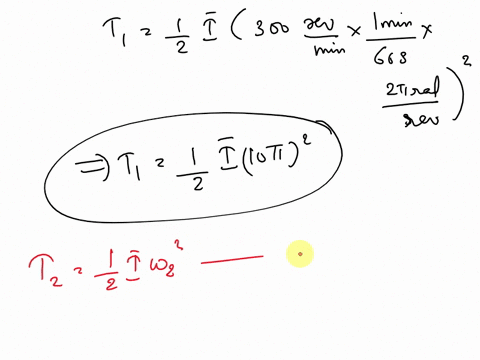 T₁ = 1/2 Ī (300 rev/min × 1min/60s ×
2π rad/rev)²
⇒ T₁ = 1/2 Ī (10π)²
T₂ = 1/2 Ī ω₂² —